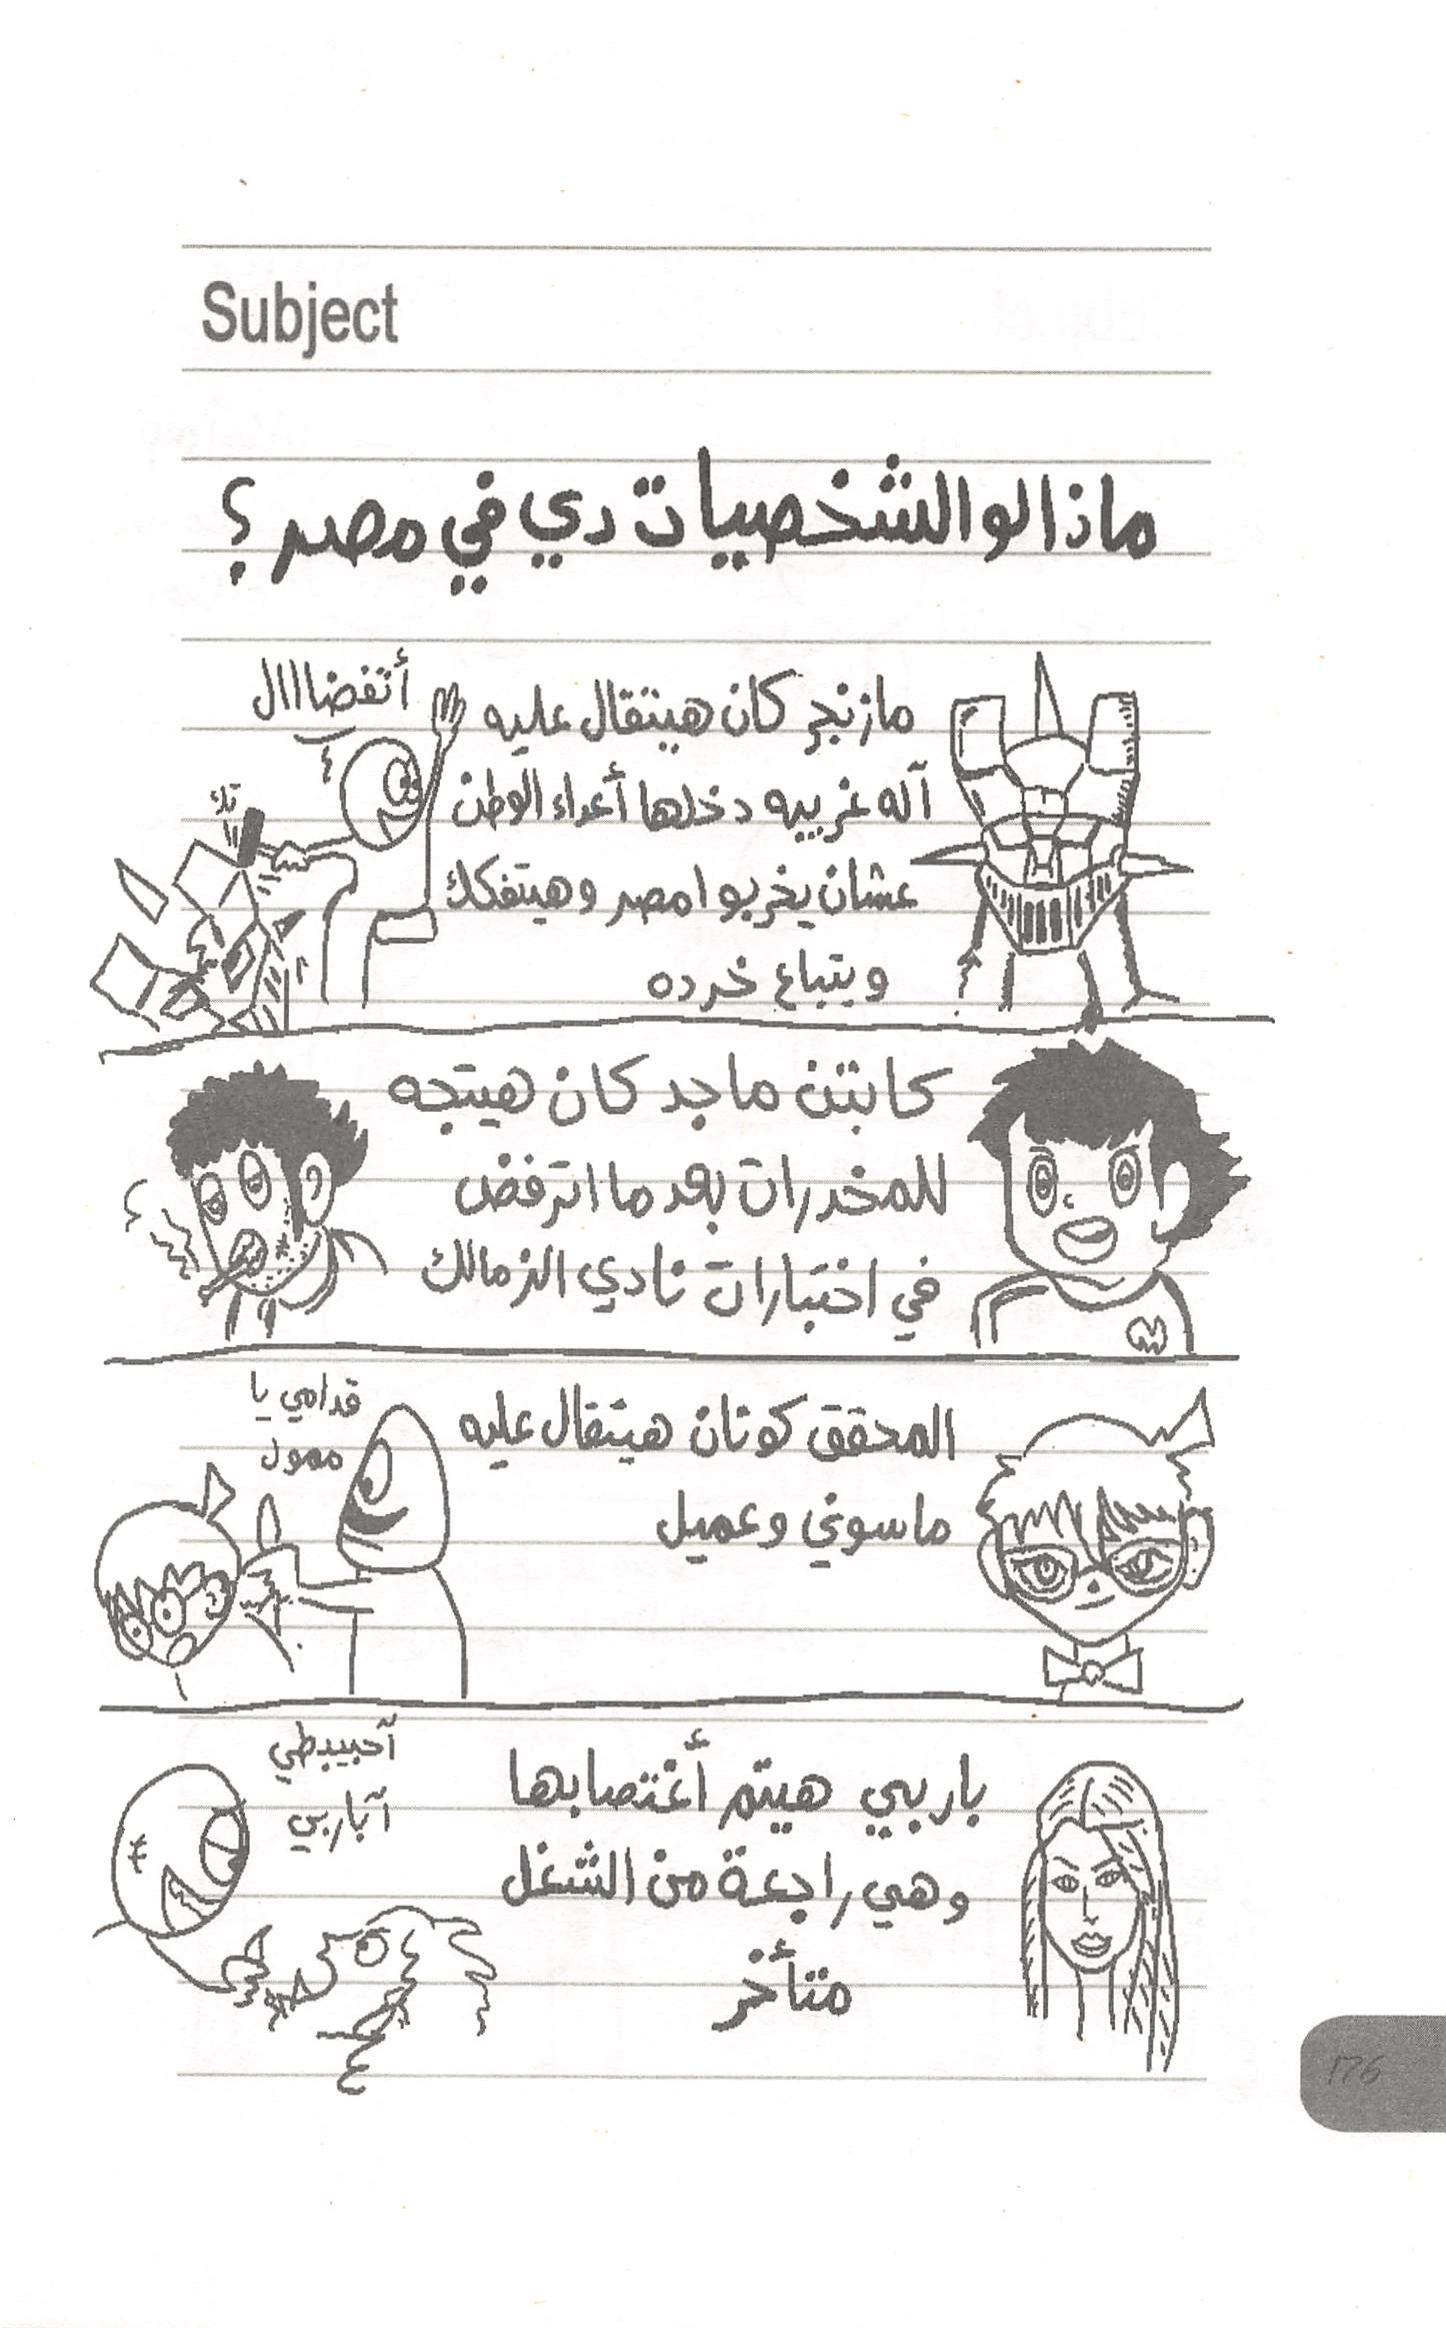 Subject
ماذا لو الشخصيات دي في مصر؟
مازنجر كان هيتقال عليه
آله غريبه دخلها أعداء الوطن
عشان يخربوا مصر وهيتفكك
ويتباع خرده
أتفضااال
تك
كابتن ماجد كان هيتجه
للمخدرات بعد ما اترفض
في اختبارات نادي الزمالك
المحقق كونان هيتقال عليه
ماسوني وعميل
قدامي يا
ممول
باربي هيتم أغتصابها
وهي راجعة من الشغل
متأخر
آباربي
176